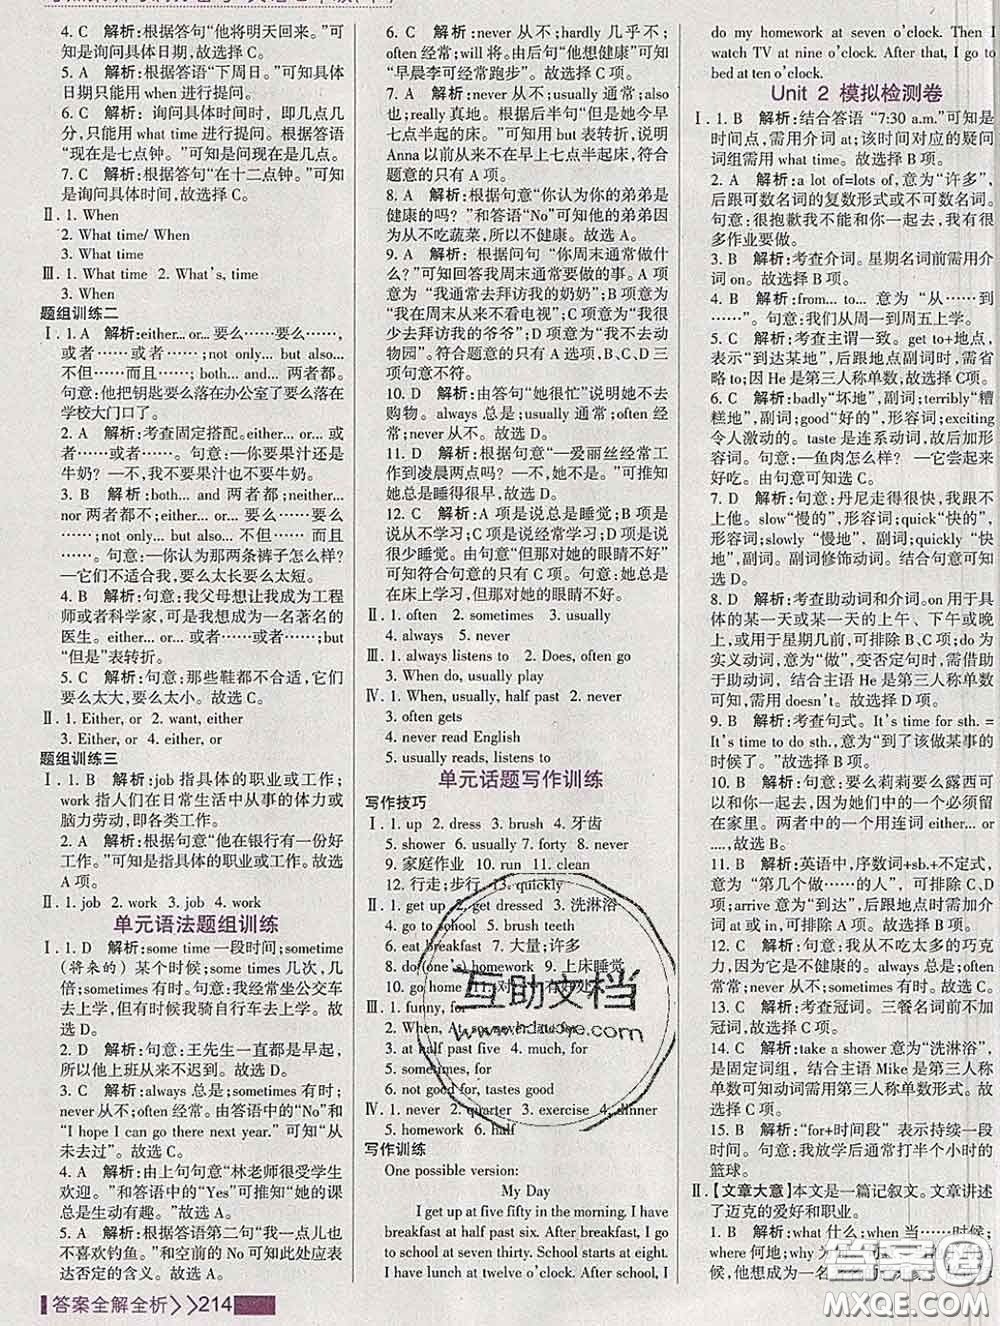 4. C 解析:根据答语“他将明天回来。”可知
是询问具体日期。故选择 C。
5. A 解析:根据答语“下周日。”可知具体
日期只能用 when 进行提问。
6. C 解析: 询问具体时间时，即几点几
分，只能用 what time 进行提问。根据答语
“现在是七点钟。”可知问现在是几点。
7. C 解析:根据答句“在十二点钟。”可知
是询问具体时间，故选择 C。
Ⅱ. 1. When
2. What time/ When
Ⅲ. 1. What time 2. What's, time
3. When
题组训练二
Ⅰ. 1. A 解析:either... or... 要么……要么……,
或者……或者……;not only... but also...
不但……而且……; both... and... 两者都。
句意:他把钥匙要么落在办公室了要么落在
学校大门口了。
2. A 解析:考查固定搭配。either... or... 或者
……或者……。句意:—你要果汁还是
牛奶? —不,我不要果汁也不要牛奶。
3. B 解析:both... and 两者都;neither...
nor 两者都不; either... or... 要么……要么
……;not only... but also... 不但……而且
……。句意:—你认为那两条裤子怎么样?
—它们不适合我,要么太长要么太短。
4. B 解析:句意:我父母想让我成为工程
师或者科学家,可是我想成为一名著名的
医生。either... or... 或者……或者……;but
“但是”表转折。
5. C 解析:句意:那些鞋都不合适,它们
要么太大,要么太小。故选 C。
Ⅱ. 1. Either, or 2. want, either
3. Either, or 4. either, or
题组训练三
Ⅰ. 1. B 解析:job 指具体的职业或工作;
work 指人们在日常生活中从事的体力或
脑力劳动,即各类工作。
2. A 解析:根据句意“他在银行有一份好
工作。”可知是指具体的职业或工作。故选
A 项。
Ⅱ. 1. job 2. work 3. job 4. work
单元语法题组训练
Ⅰ. 1. D 解析:some time 一段时间;sometime
(将来的) 某个时候;some times 几次,几
倍;sometimes 有时。句意:我经常坐公交车
去上学,但有时候我骑自行车去上学。故
选 D。
2. D 解析:句意:王先生一直都是早起,
所以他上班从来不迟到。故选 D。
3. C 解析:always 总是;sometimes 有时;
never 从不;often 经常。由答语中的“No”和
“I hope I can go there next year.”可知“从
未去过”。故选 C。
4. A 解析:由上句句意“林老师很受学生
欢迎。”和答语中的“Yes”可推知“她的课
总是生动有趣。”故选 A。
5. A 解析:根据答语第二句“我一点儿也
不喜欢钓鱼。”和空前的 No 可知此处应表
达否定的含义。故选 A。
答案全解全析>>214
6. C 解析:never 从不;hardly 几乎不;
often 经常;will 将。由后句“他想健康”可知
“早晨李可经常跑步”。故选 C。
7. A 解析:never 从不;usually 通常;also
也;still 还。根据后半句“但是她今早七点
七点起的床”,可知 but 表转折,说明
Anna 以前从来不在早上七点半起床,符合
题意的只有 A 项。
8. A 解析:根据句意“你认为你的弟弟是
健康的吗?”和答语“No”可知他的弟弟因
为从不吃蔬菜,所以不健康。故选 A。
9. A 解析: 根据问句 “你周末通常做什
么?”可知回答我周末通常要做的事。A 项
意为 “我通常去拜访我的奶奶”;B 项意为
“我在周末从来不看电视”;C 项意为“我很
少去拜访我的爷爷”;D 项意为“我不去动
物园”。符合题意的只有 A 选项,B、C、D 三
项句意不符。
10. D 解析:由答句“她很忙”说明她不去
购物。always 总是;usually 通常;often 经
常;never 从不。故选 D。
11. D 解析:根据句意“—爱丽丝经常工
作到凌晨两点吗? —不,她不是。”可推知
她总是睡得很早,故选 D。
12. C 解析:A 项是说总是睡觉;B 项是说
从不学习;C 项是说总是学习;D 项是说
很少睡觉。由句意“但那对她的眼睛不好”
可知符合句意的只有 C 项。句意:她总是
在床上学习,但那对她的眼睛不好。
Ⅱ. 1. often 2. sometimes 3. usually
4. always 5. never
Ⅲ. 1. always listens to 2. Does, often go
3. When do, usually play
Ⅳ. 1. When, usually, half past 2. never
3. often gets
4. never read English
5. usually reads, listens to
单元话题写作训练
写作技巧
Ⅰ. 1. up 2. dress 3. brush 4. 牙齿
5. shower 6. usually 7. forty 8. never
9. 家庭作业 10. run 11. clean
12. 行走;步行 13. quickly
Ⅱ. 1. get up 2. get dressed 3. 洗淋浴
4. go to school 5. brush teeth
6. eat breakfast 7. 大量;许多
8. do (one's) homework 9. 上床睡觉
10. go home
Ⅲ. 1. funny, for
2. When, At
3. at half past five 4. much, for
5.
6. not good for, tastes good
Ⅳ. 1. never 2. quarter 3. exercise 4. dinner
5. homework 6. half
写作训练
One possible version:
My Day
I get up at five fifty in the morning. I have
breakfast at half past six. After breakfast, I go
to school at seven thirty. School starts at eight.
I have lunch at twelve o'clock. After school, I
do my homework at seven o'clock. Then I
watch TV at nine o'clock. After that, I go to
bed at ten o'clock.
Unit 2 模拟检测卷
Ⅰ. 1. B 解析:结合答语 “7:30 a.m.”可知是
时间点,需用介词 at;该时间对应的疑问
词组需用 what time。故选择 B 项。
2. A 解析:a lot of=lots of,意为“许多”,
后跟可数名词的复数形式或不可数名词。
句意:很抱歉我不能和你一起去,我有很
多作业要做。
3. B 解析:考查介词。星期名词前需用介
词 on。故选择 B 项。
4. B 解析:from... to... 意为 “从……到
……”。句意:他们从周一到周五上学。
5. C 解析:考查主谓一致。get to+地点,
表示“到达某地”,后跟地点副词时,需省
略 to;因 He 是第三人称单数,故选择 C项。
6. C 解析:badly“坏地”,副词;terribly“糟
糕地”,副词;good“好的”,形容词;exciting
令人激动的。taste 是连系动词,故后加形
容词。句意:—鱼肉怎么样? —它尝起来
好吃。由句意可知选 C。
7. D 解析:句意:丹尼走得很快,我跟不
上他。slow“慢的”,形容词;quick“快的”,
形容词;slowly “慢地”, 副词;quickly “快
地”,副词。副词修饰动词。结合句意可知
选 D。
8. D 解析:考查助动词和介词。on 用于
具体的某一天或某一天的上午、下午或晚
上,或用于星期几前,可排除 B、C 项;do 为
实义动词,意为“做”,变否定句时,需借助
于助动词,结合主语 He 是第三人称单数
可知,需用 doesn't。故选择 D 项。
9. B 解析:考查句式。It's time for sth. =
It's time to do sth.,意为“到了该做某事的
时候了。”故选择 B 项。
10. B 解析:句意:要么莉莉要么露西可
以和你一起去,因为她们中的一个必须留
在家里。两者中的一个用连词 either... or
...., 故选 B 项。
11. B 解析:英语中,序数词+sb.+不定式,
意为“第几个做……的人”,可排除 C、D
项;arrive 意为“到达”,后跟地点名词时用
介词 at 或 in,故选择 B 项。
12. C 解析:句意:我从不吃太多的巧克
力,因为它不是健康的食品。故选 C。
13. C 解析:考查冠词。三餐名词前不加
冠词,故选择 C 项。
14. C 解析:take a shower 意为“洗淋浴”,
是固定词组,结合主语 Mike 是第三人称
单数可知动词需用第三人称单数形式。故
选择 C 项。
15. B 解析:“for+时间段” 表示持续一段
时间。句意:我放学后通常打半个小时的
篮球。
Ⅱ. 【文章大意】本文是一篇记叙文。文章讲述
了迈克的爱好和职业。
1. B 解析:what 什么;when 当……时候;
where 何地;why 为
互助文档
答案圈
MXQE.COM